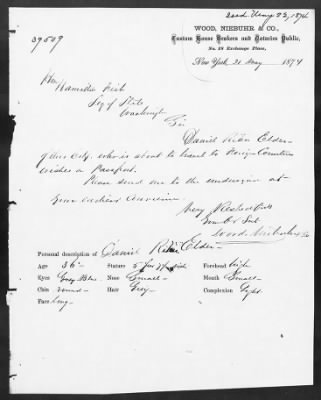 May 22, 1874
WOOD, NIEBUHR, & CO.,
Custom House Brokers and Notaries Public,
No. 18 Exchange Place,
39509
New York 21 May 1874
Hon
Hamilton Fish
Secy of State
Washingt
Sir
Daniel Elder
of this City, who is about to travel to Foreign Countries
wishes a Passport.
Please send one to the undersigned at
your earliest convenience
Very Respectfully
Your Obt Svt
Wood, Niebuhr & Co
Personal description of Daniel Elder
Age 36 Stature 5 feet Forehead high
Eyes Grey Blue Nose Small Mouth Small
Chin round Hair Grey Complexion Light
Face long